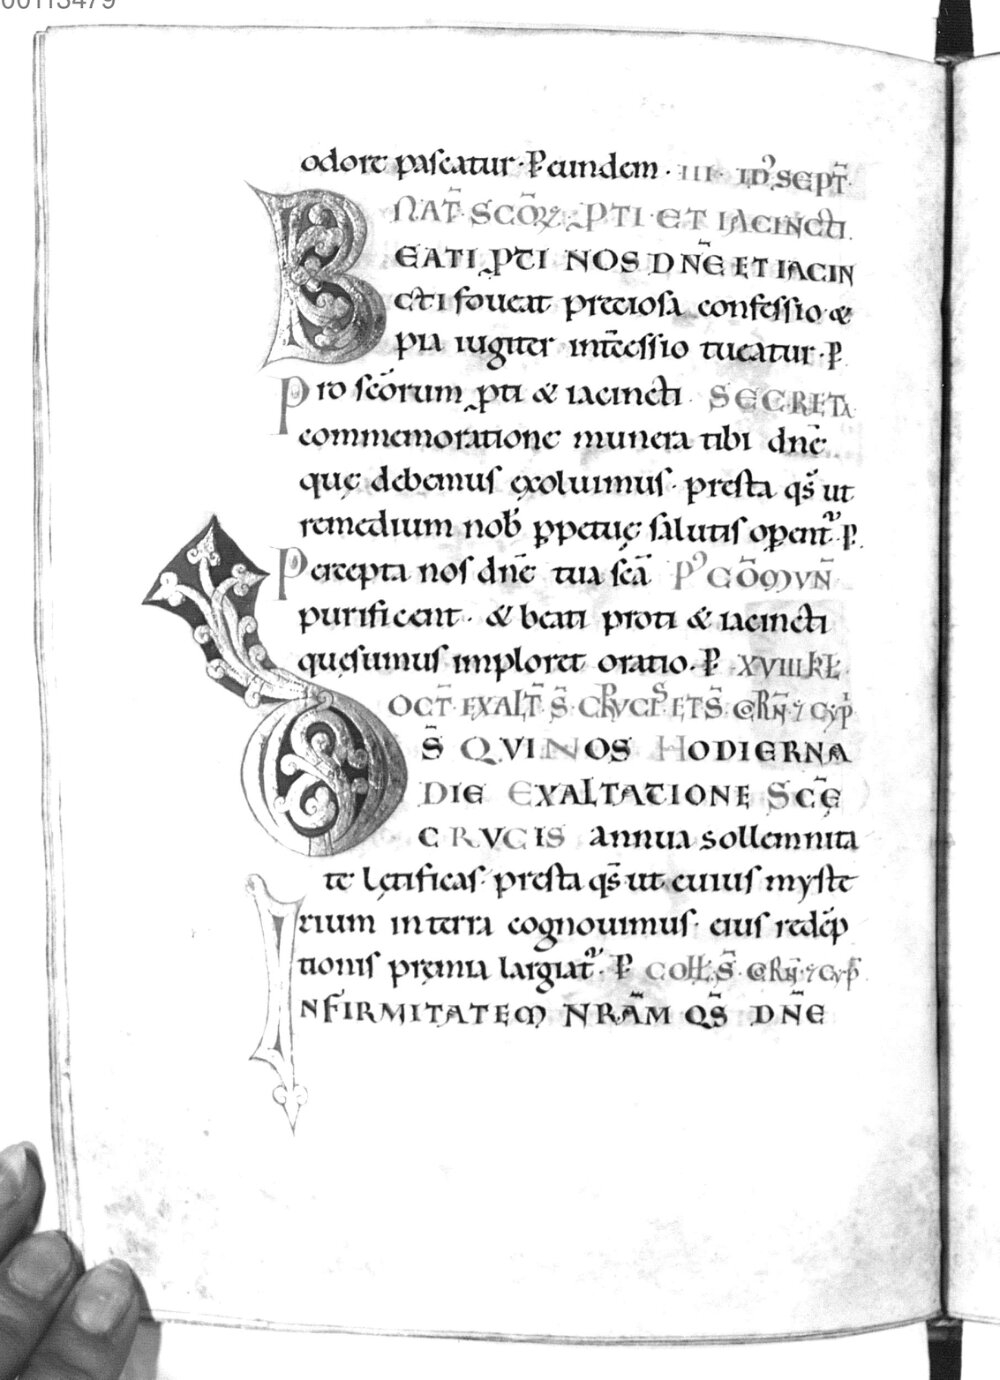 00113479
odore pascatur · P eundem · III · ID' SEPT̄
NAT̄ SCŌR̄ PTI · ET IACINCTI.
BEATI PTI NOS DN̄E ET IACIN
CTI foueat preciosa confessio &
pia iugiter int̄cessio tueatur · P
Pro sc̄orum pti & iacincti SECRETA
commemoratione munera tibi dn̄e
quę debemus exoluimus · presta qs̄ ut
remedium nob̄ ppetuę salutis operent' P.
Percepta nos dn̄e tua sc̄a P' CŌMVN̄
purificent · & beati proti & iacincti
quęsumus imploret oratio. P XVIII KL̄
OCT̄ EXALT̄ S̄ CRVCIS ET S̄ CORN̄ ⁊ CYP̄
DS̄ QVI NOS HODIERNA
DIE EXALTATIONE SC̄Ę
CRVCIS annua sollemnita
te lętificas · presta qs̄ ut cuius myste
rium in terra cognouimus · eius redēp
tionis pręmia largiat' · P COLL̄ S̄ · CORN̄ · ⁊ CYP̄
INFIRMITATEM NRĀM QS̄ DN̄E